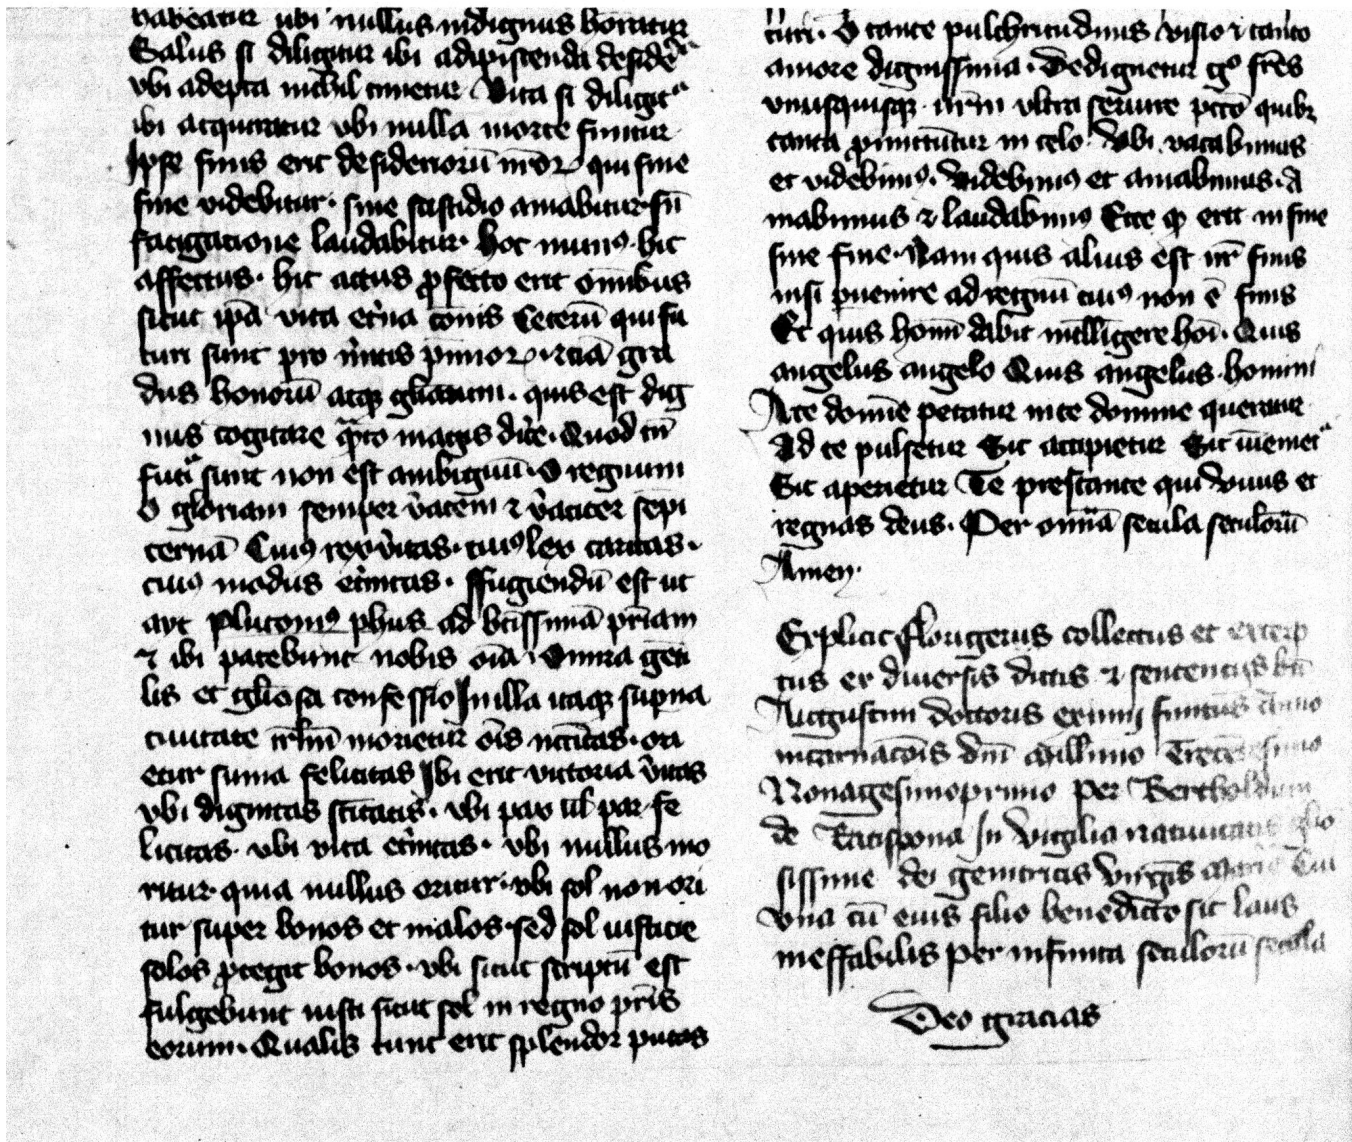 habeatur ubi nullus indignus honoratur
Salus si diligitur ibi adipiscenda desiderᵃ
vbi adepta nichil timetur Vita si diligitᵃ
ibi acquiratur vbi nulla morte finitur
Ipse finis erit desideriorū nr̄oꝝ qui sine
fine videbitur · sine fastidio amabitur sn̄
fatigacione laudabitur · hoc munꝰ · hic
affectus · hic actus ꝓfecto erit omībus
sicut ip̄a vita etn̄a cōnis Ceterū qui fu
turi sunt pro mītis p̄mioꝝ · etiā gra
dus honorū atqꝫ gliarum · quis est dig
nus cogitare qᵃnto magis dicē · Quod tn̄
futᵃ sunt non est ambiguū · O regnum
O gloriam semper v̄acem ⁊ v̄aciter sempi
ternā Cuiꝰ rex v̄itas · cuiꝰ lex caritas ·
cuiꝰ modus etn̄itas · ffugiendū est ut
ayt Plutoniꝰ phus ad btīssimā pr̄iam
⁊ ibi patebunt nobis oīa · Omnia gen
lis et gliosa confessio In illa itaqꝫ sup̄na
ciuitate ir̄lm̄ morietur oīs nc̄citas · ori
etur suma felicitas Ibi erit victoria v̄itas
vbi dignitas sc̄itatis · vbi pax ubi par fe
licitas · vbi vita etn̄itas · vbi nullus mo
ritur · quia nullus oritur · vbi sol non ori
tur super bonos et malos · sed sol iusticie
solos ꝓtegit bonos · vbi sicut scriptū est
fulgebunt iusti sicut sol in regno pr̄is
eorum · Qualis tunc erit splendor putas
turi · O tante pulchritudinis visio ⁊ tanto
amore dignissima · Dedignetur gᵒ fr̄es
vnusquisqꝫ nr̄m vltra seruire pctō quibꝫ
tanta ꝓmittūtur in celo · Vbi vacabimus
et videbimꝰ · Videbimꝰ et amabimus · A
mabimus ⁊ laudabimꝰ Ecce qꝫ erit in fine
sine fine · Nam quis alius est nr̄ finis
nisi puenire ad regnū cuiꝰ non ē finis
Et quis homī dabit intelligere hoī · Quis
angelus angelo Quis angelus · homini
A te domīe petatur in te domine queratur
Ad te pulsetur Sic accipietur Sic inuenietᵃ
Sic aperietur Te prestante qui viuis et
regnas deus · Per omīa secula seculorū
Amen ·
Explicit florigerus collectus et excerp
tus ex diuersis dictis ⁊ sentencijs bti
Augustini doctoris eximij finitus Anno
incarnacōis dn̄i Millimo Trecētesimo
Nonagesimoprimo per Bertholdum
de Ratispona In vigilia natiuitatis glio
sissime dei genitricis virgīs Marie Cui
vna cū eius filio benedicto sit laus
ineffabilis per infinita seculorū secula
Deo gracias